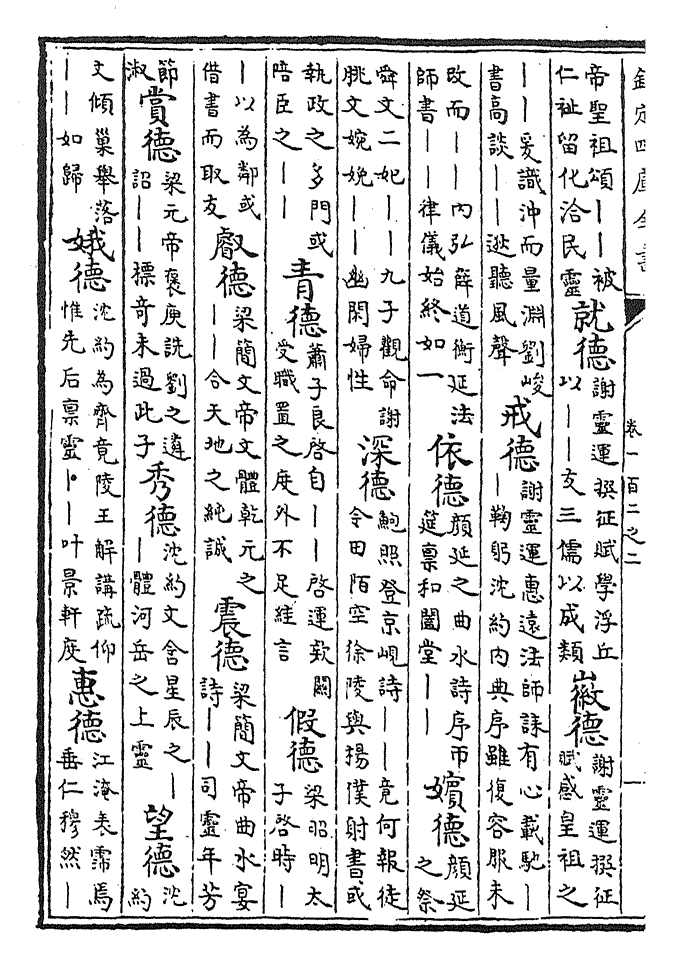 欽定四庫全書
卷一百二之二
一
帝聖祖頌——被仁祉留化洽民靈 就德 謝靈運撰征賦學浮丘以——友三儒以成類 徽德 謝靈運撰征賦感皇祖之
——爰識沖而量淵劉峻書高談——逖聽風聲 戒德 謝靈運惠遠法師誄有心載馳——鞠躬沈約内典序雖復容服未
改而——内弘薛道衡延法師書——律儀始終如一 依德 顔延之曲水詩序帀筵稟和闔堂—— 嬪德 顔延之祭
舜文二妃——九子觀命謝朓文婉娩——幽閑婦性 深德 鮑照登京峴詩——竟何報徒令田陌空徐陵與揚僕射書或
執政之多門或陪臣之—— 青德 蕭子良啓自——啓運欵關受職置之度外不足絓言 假德 梁昭明太子啓時—
—以為鄰或借書而取友 叡德 梁簡文帝文體乾元之——合天地之純誠 震德 梁簡文帝曲水宴詩——司靈年芳
節淑 賞德 梁元帝褒庾詵劉之遴詔——標奇未過此子 秀德 沈約文含星辰之——體河岳之上靈 望德 沈約
文傾巢舉落——如歸 娥德 沈約為齊竟陵王解講疏仰惟先后稟靈——叶景軒度 惠德 江淹表霈焉垂仁穆然—